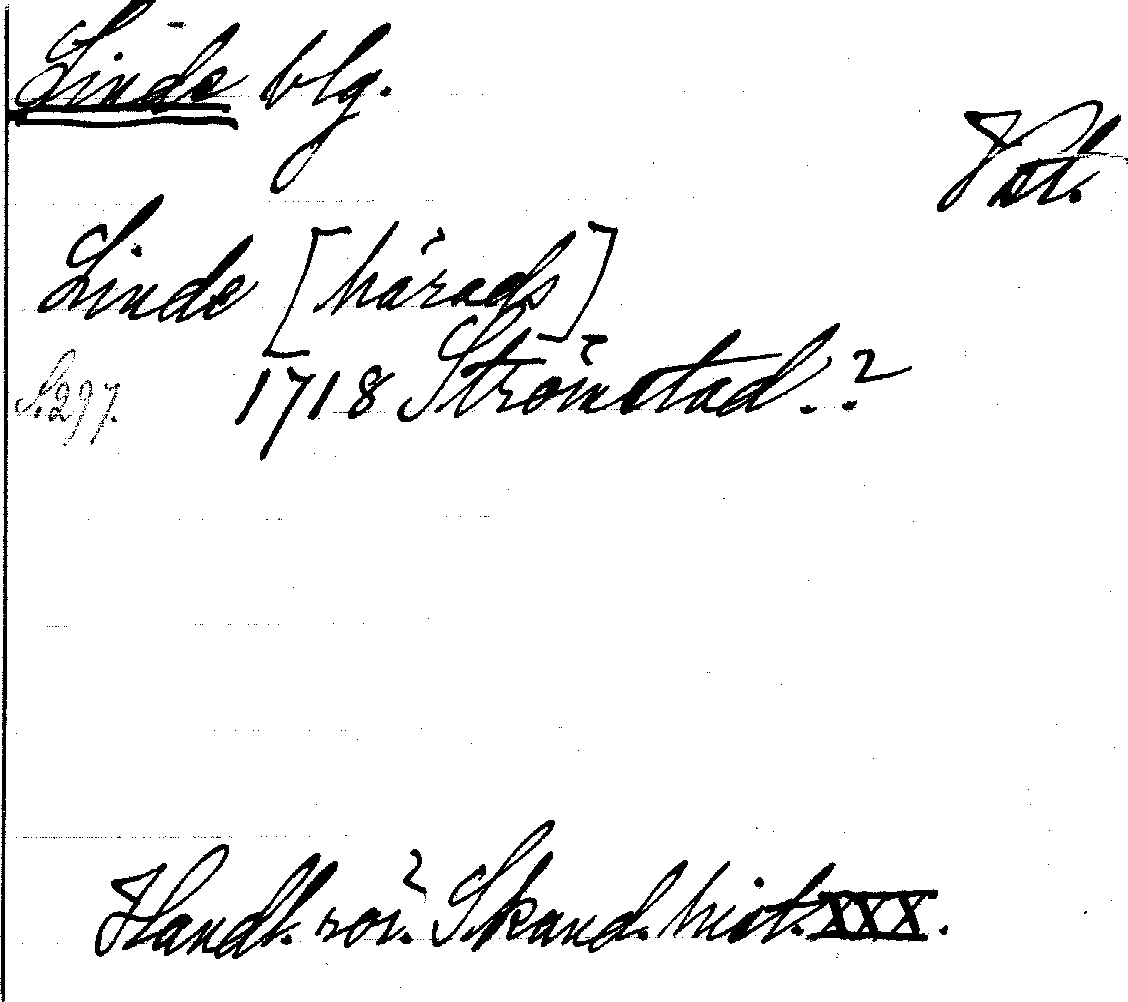 Linde blg.
Vst.
Linde [härads]
S. 297. 1718 Strömstad.?
Handl. rör. Skand. hist. XXX.